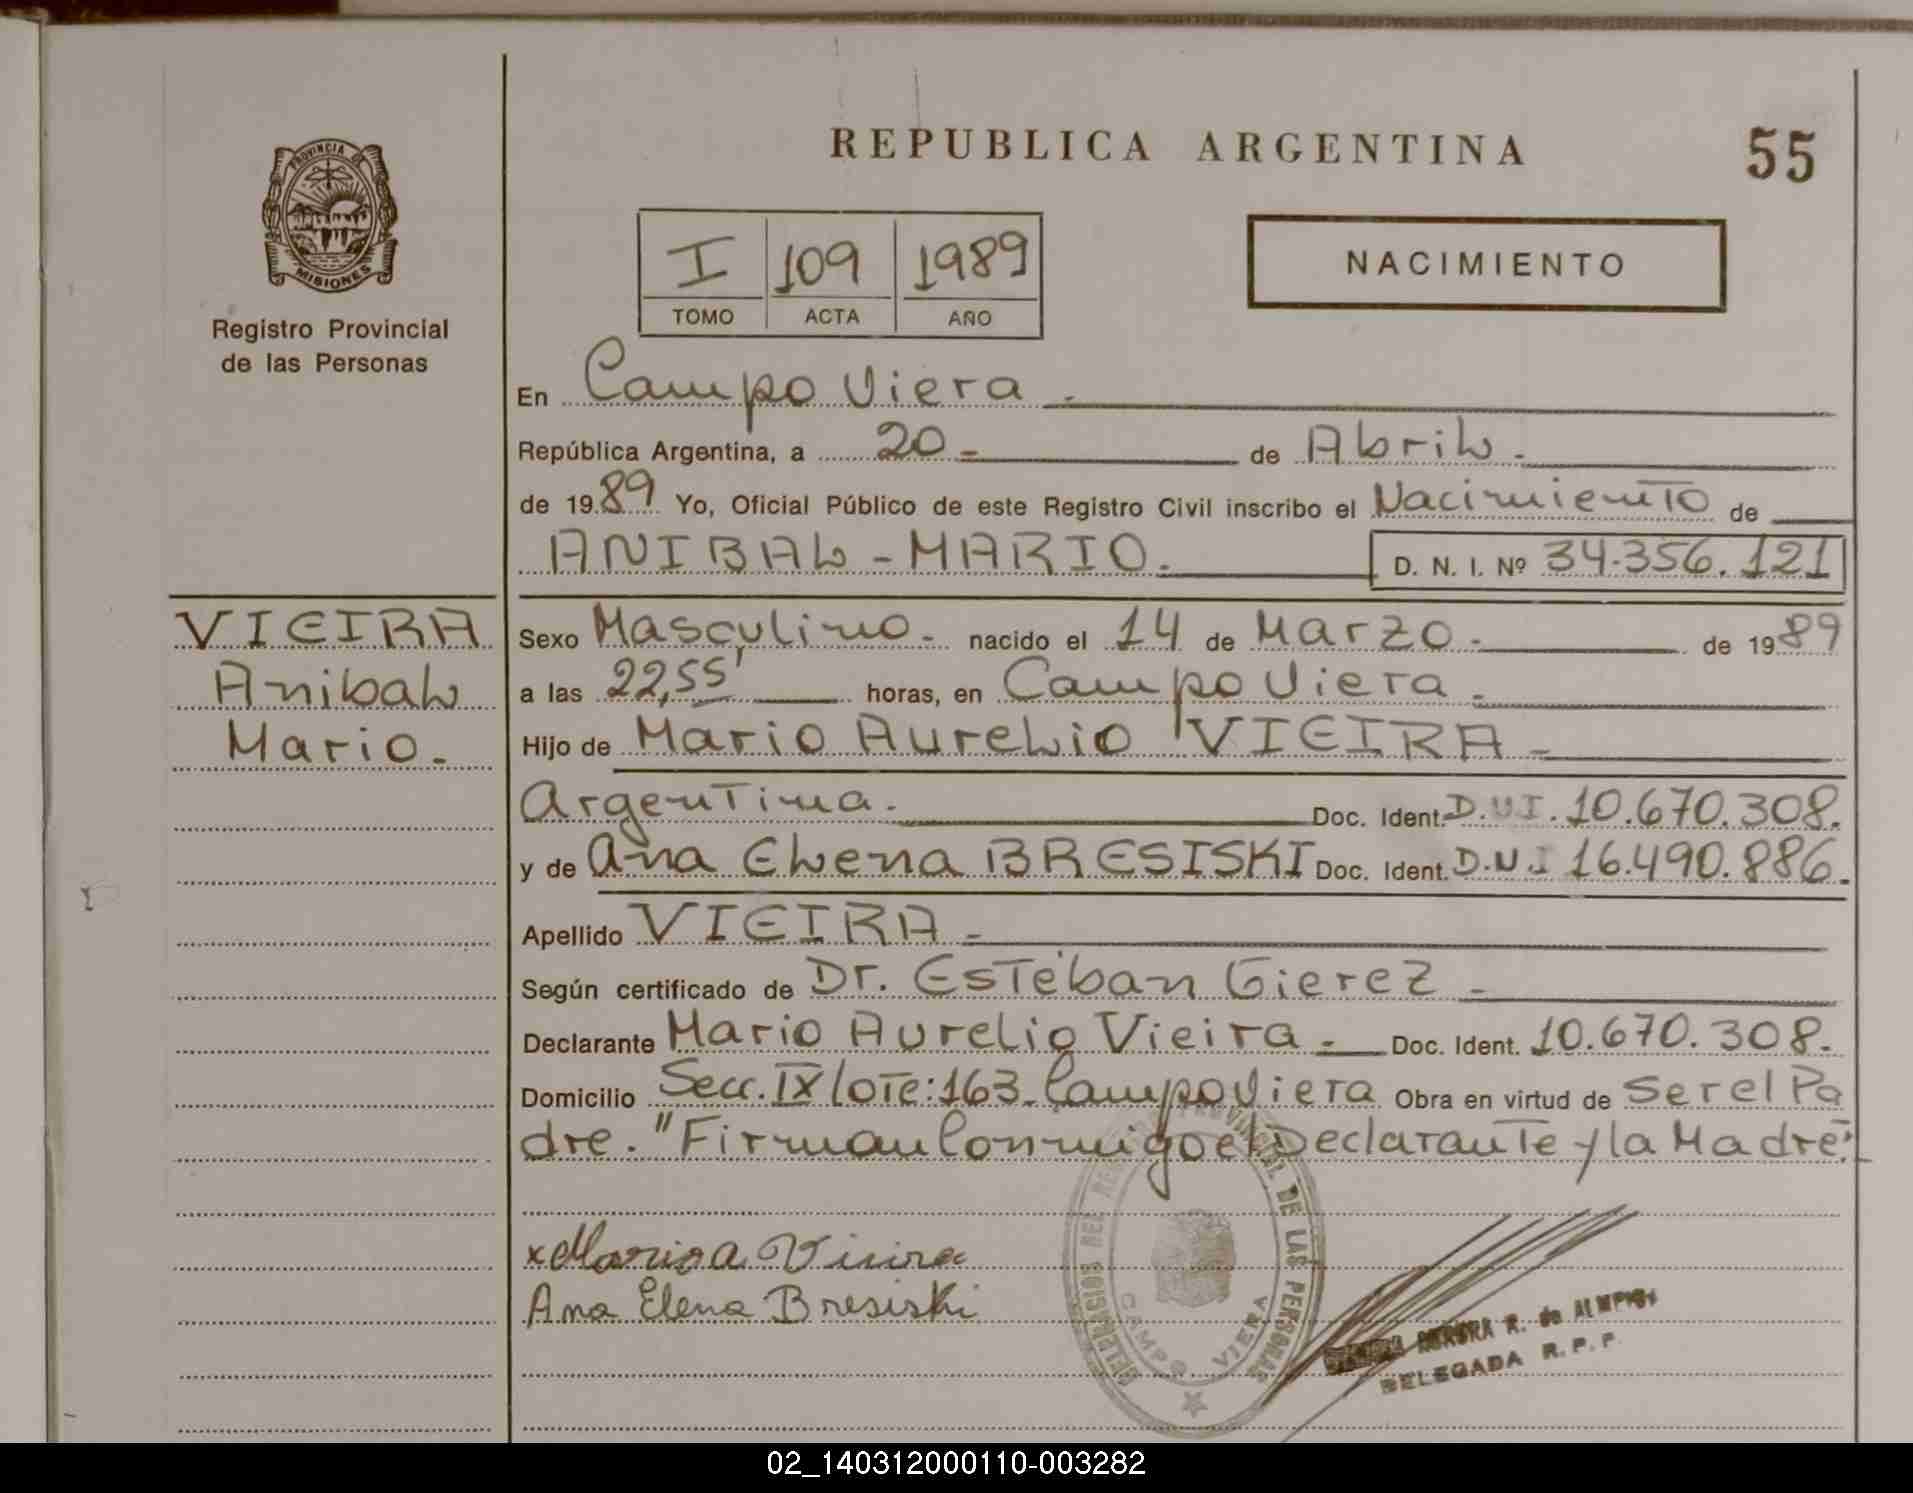 REPUBLICA ARGENTINA
55
PROVINCIA DE
MISIONES
Registro Provincial
de las Personas
I 109 1989
TOMO ACTA AÑO
NACIMIENTO
En Campo Viera.
República Argentina, a 20 de Abril.
de 1989 Yo, Oficial Público de este Registro Civil inscribo el Nacimiento de
ANIBAL-MARIO. D. N. I. Nº 34.356.121
VIEIRA
Anibal
Mario.
Sexo Masculino. nacido el 14 de Marzo. de 1989
a las 22,55' horas, en Campo Viera.
Hijo de Mario Aurelio VIEIRA
Argentina. Doc. Ident. D.N.I. 10.670.308.
y de Ana Elena BRESISKI Doc. Ident. D.N.I 16.490.886.
Apellido VIEIRA
Según certificado de Dr. Esteban Gierez
Declarante Mario Aurelio Vieira. Doc. Ident. 10.670.308.
Domicilio Secc. IX lote: 163. Campo Viera Obra en virtud de Ser el Pa
dre. "Firman Conmigo el Declarante y la Madre".
Vieira
Ana Elena Bresiski
DEL REGISTRO PROVINCIAL DE LAS PERSONAS
CAMPO VIERA
AURORA R. de
DELEGADA R. P. P.
02_140312000110-003282